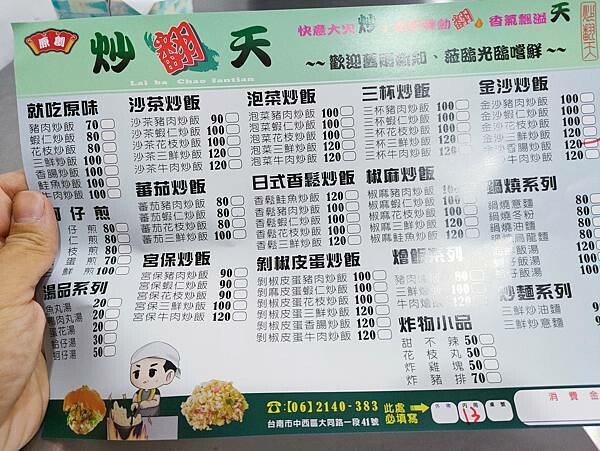 原創
炒翻天
Lai ba Chao fantian
香氣飄溢 天
~~歡迎舊雨新知、蒞臨光臨嚐鮮~~
炒翻天
就吃原味
豬肉炒飯 70
蝦仁炒飯 80
花枝炒飯 80
三鮮炒飯 100
香腸炒飯 100
鮭魚炒飯 100
牛肉炒飯 100
沙茶炒飯
沙茶豬肉炒飯 90
沙茶蝦仁炒飯 100
沙茶花枝炒飯 100
沙茶三鮮炒飯 120
沙茶牛肉炒飯 120
泡菜炒飯
泡菜豬肉炒飯 100
泡菜蝦仁炒飯 100
泡菜花枝炒飯 100
泡菜三鮮炒飯 120
泡菜牛肉炒飯 120
三杯炒飯
三杯豬肉炒飯 100
三杯蝦仁炒飯 100
三杯花枝炒飯 100
三杯三鮮炒飯 120
三杯牛肉炒飯 120
金沙炒飯
金沙豬肉炒飯 100
金沙蝦仁炒飯 100
金沙花枝炒飯 100
金沙三鮮炒飯 120
香腸炒飯 120
牛肉炒飯 120
仔煎
仔煎 80
仁煎 80
枝煎 80
蛋煎 70
鮮煎 100
蕃茄炒飯
蕃茄豬肉炒飯 80
蕃茄蝦仁炒飯 80
蕃茄花枝炒飯 80
蕃茄三鮮炒飯 100
日式香鬆炒飯
香鬆鮭魚炒飯 120
香鬆豬肉炒飯 100
香鬆蝦仁炒飯 100
香鬆花枝炒飯 100
香鬆三鮮炒飯 120
椒麻炒飯
椒麻豬肉炒飯
椒麻蝦仁炒飯 100
椒麻花枝炒飯 100
椒麻三鮮炒飯 120
椒麻鮭魚炒飯 120
鍋燒系列
鍋燒意麵 80
鍋燒冬粉 80
鍋燒烏龍麵
飯湯
湯品系列
魚丸湯 20
貢丸湯 20
蛋花湯 20
蛤仔湯 50
蚵仔湯 50
宮保炒飯
宮保豬肉炒飯 90
宮保蝦仁炒飯 90
宮保花枝炒飯 90
宮保三鮮炒飯 120
宮保牛肉炒飯 120
剝椒皮蛋炒飯
剝椒皮蛋豬肉炒飯 100
剝麻皮蛋蝦仁炒飯 100
剝椒皮蛋花枝炒飯 100
剝椒皮蛋三鮮炒飯 120
剝椒皮蛋香腸炒飯 120
剝椒皮蛋牛肉炒飯 120
燴飯系列
豬肉燴飯 80
三鮮燴飯
牛肉燴飯 120
炒麵系列
三鮮炒油麵
三鮮炒意麵
炸物小品
甜不辣 50
花枝丸 50
炸雞塊 50
炸豬排 70
☎:【06】2140-383
台南市中西區大同路一段41號
此處必填寫
外帶
內用
桌號
13
消費金